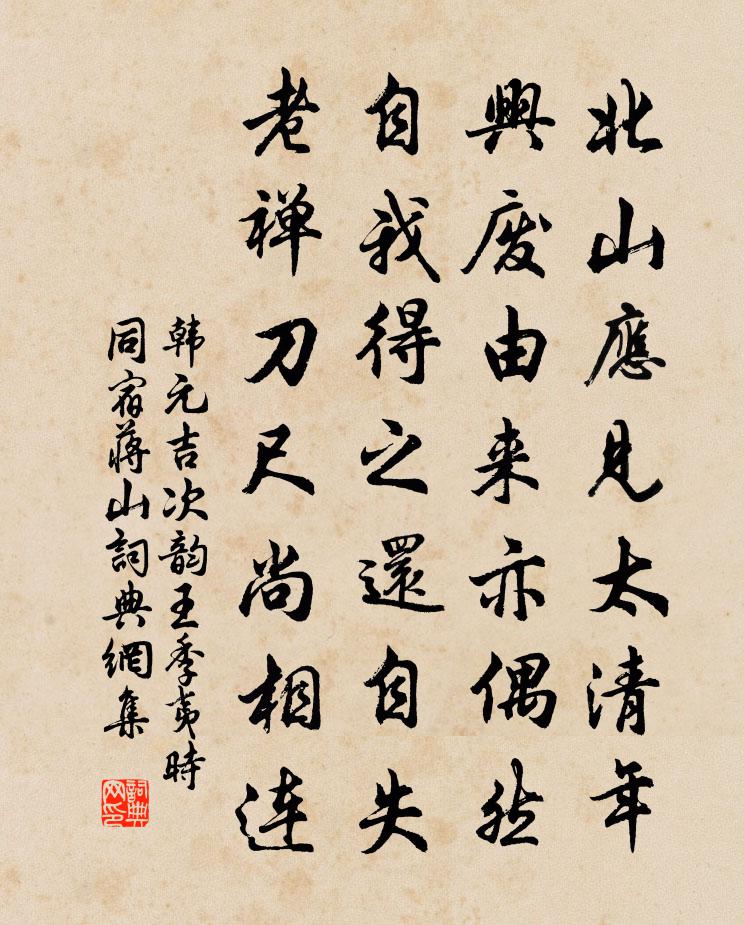 北山應見太清年
興廢由来亦偶然
自我得之還自失
老禅刀尺尚相连
韩元吉次韵王季夷時
同宿蔣山詞典網集
詞典
网印